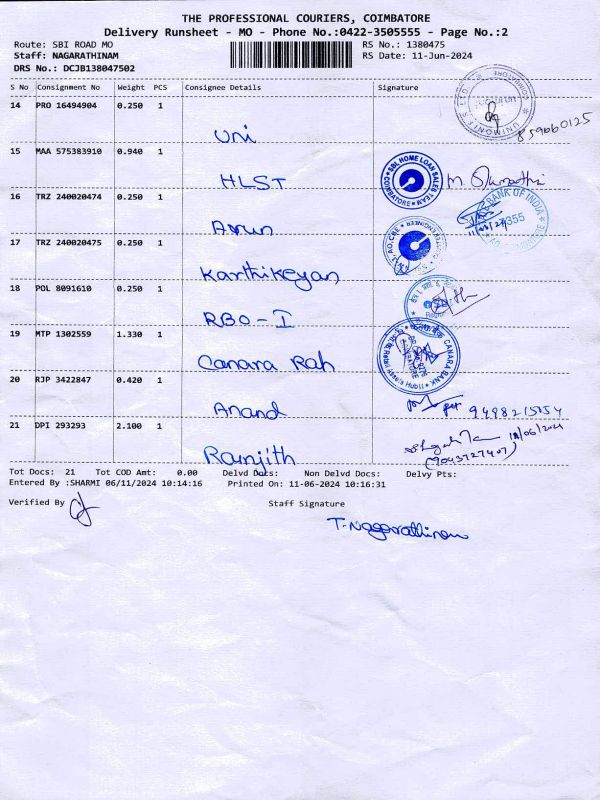 THE PROFESSIONAL COURIERS, COIMBATORE
Delivery Runsheet - MO - Phone No.:0422-3505555 - Page No.:2
Route: SBI ROAD MO RS No.: 1380475
Staff: NAGARATHINAM RS Date: 11-Jun-2024
DRS No.: DCJB138047502
S No Consignment No Weight PCS Consignee Details Signature
14 PRO 16494904 0.250 1
Uni
8590060125
15 MAA 575383910 0.940 1
HLST
SBI, HOME LOAN SALES TEAM COIMBATORE
16 TRZ 240020474 0.250 1
Arun
BANK OF INDIA
17 TRZ 240020475 0.250 1
Karthikeyan
18 POL 8091610 0.250 1
RBO - I
19 MTP 1302559 1.330 1
Canara Rah
CANARA BANK
20 RJP 3422847 0.420 1
Anand
21 DPI 293293 2.100 1
Ranjith
(9043727407)
Tot Docs: 21 Tot COD Amt: 0.00 Delvd Docs: Non Delvd Docs: Delvy Pts:
Entered By :SHARMI 06/11/2024 10:14:16 Printed On: 11-06-2024 10:16:31
Verified By Staff Signature
T. Nagarathinam